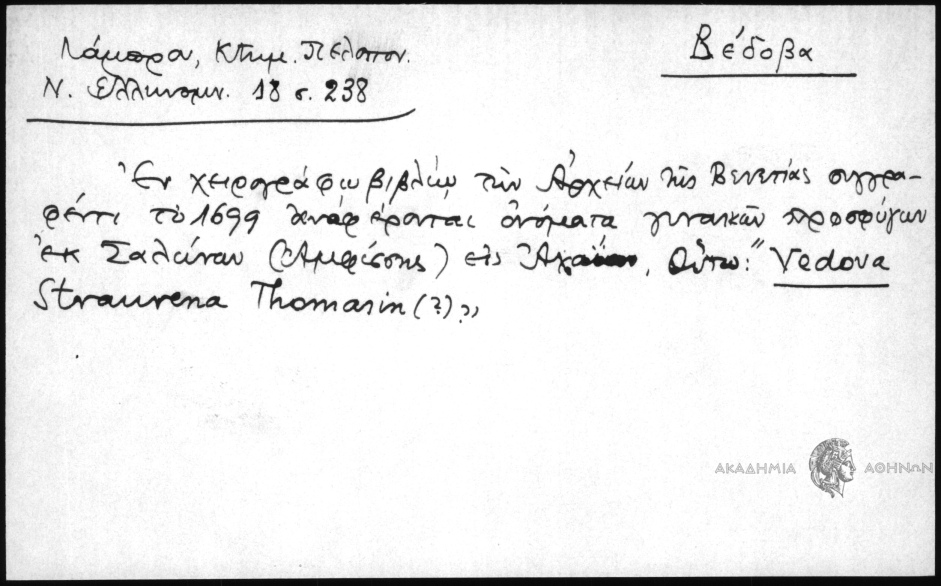 Λάμπρου, Κτημ. Πελοπον.
Ν. Ἑλληνομν. 18 σ. 238
Βέδοβα
Ἐν χειρογράφῳ βιβλίῳ τῶν Ἀρχείων τῆς Βενετίας συγγρα-
φέντι τὸ 1699 ἀναφέρονται ὀνόματα γυναικῶν προσφύγων
ἐκ Σαλώνων (Ἀμφίσσης) εἰς Ἀχαΐαν, Οὕτω: "Vedova
Straurena Thomasin (?)"
ΑΚΑΔΗΜΙΑ ΑΘΗΝΩΝ